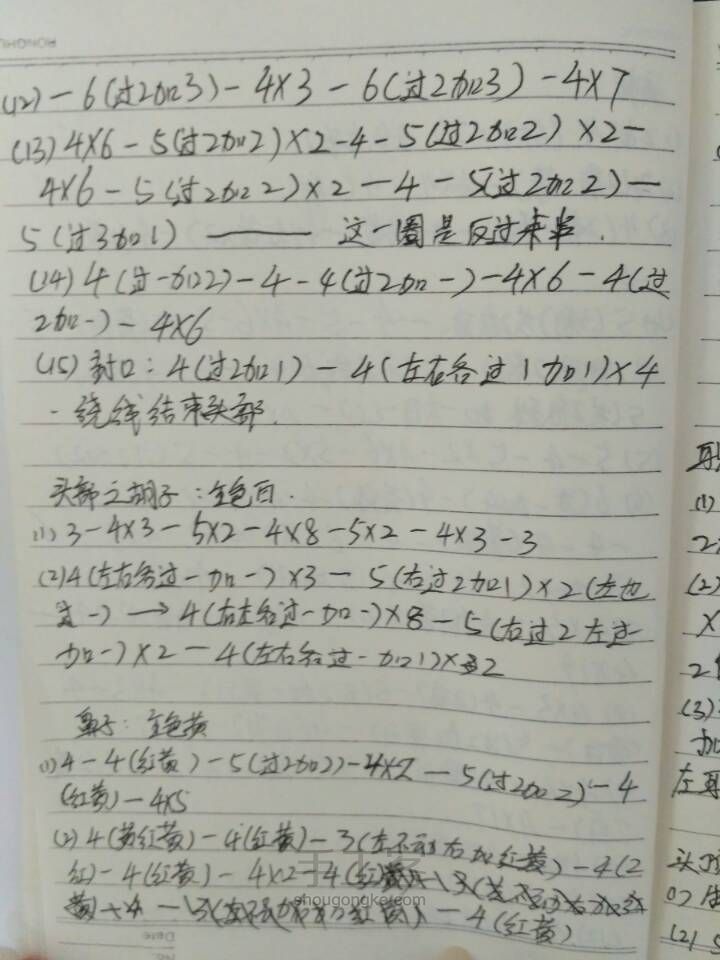 (12) - 6(过2加3) - 4×3 - 6(过2加3) - 4×7
(13) 4×6 - 5(过2加2)×2 - 4 - 5(过2加2)×2 -
4×6 - 5(过2加2)×2 - 4 - 5(过2加2) -
5(过3加1) —— 这一圈是反过来串.
(14) 4(过一加2) - 4 - 4(过2加一) - 4×6 - 4(过
2加一) - 4×6
(15) 封口: 4(过2加1) - 4(左右各过1加1)×4
- 绕线结束头部.
头部之胡子: 全色白.
(1) 3 - 4×3 - 5×2 - 4×8 - 5×2 - 4×3 - 3
(2) 4(左右各过一加一)×3 - 5(右过2加1)×2(左也
过一) → 4(右左各过一加一)×8 - 5(右过2左过一
加一)×2 - 4(左右各过一加1)×2
鼻子: 全色黄
(1) 4 - 4(红黄) - 5(过2加2) - 4×2 - 5(过2加2) - 4
(红黄) - 4×5
(2) 4(黄红黄) - 4(红黄) - 3(左不动右加红黄) - 4(2
红) - 4(红黄) - 4×2 - 4(红黄)
- 4(红黄)
手工客
shougongke.com
Date
No.
耳
(1)
2
(2)
×
2
(3)
加
左耳
头顶
(1)
(2) 5